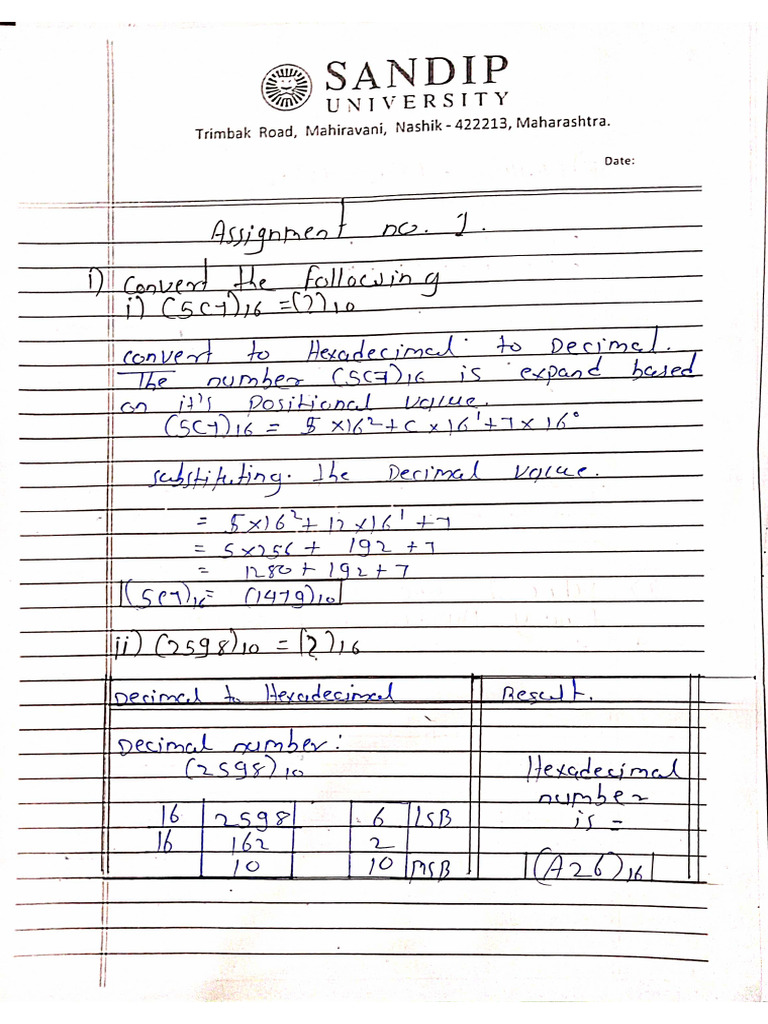 SANDIP
UNIVERSITY
Trimbak Road, Mahiravani, Nashik - 422213, Maharashtra.
Date:
Assignment no. 1.
i) convert the following
i) (5C7)16 = (?)10
convert to Hexadecimal to Decimal.
The number (5C7)16 is expand based
on it's positional value.
(5C7)16 = 5 × 16² + C × 16¹ + 7 × 16⁰
substituting. the Decimal value.
= 5 × 16² + 12 × 16¹ + 7
= 5 × 256 + 192 + 7
= 1280 + 192 + 7
(5C7)16 = (1479)10
ii) (2598)10 = (?)16
Decimal to Hexadecimal Result.
Decimal number:
(2598)10
16 2598 6 LSB
16 162 2
10 10 MSB
Hexadecimal
number
is =
(A26)16